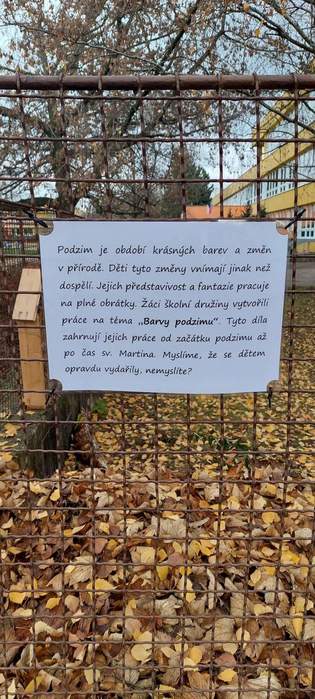 Podzim je období krásných barev a změn
v přírodě. Děti tyto změny vnímají jinak než
dospělí. Jejich představivost a fantazie pracuje
na plné obrátky. Žáci školní družiny vytvořili
práce na téma „Barvy podzimu“. Tyto díla
zahrnují jejich práce od začátku podzimu až
po čas sv. Martina. Myslíme, že se dětem
opravdu vydařily, nemyslíte?